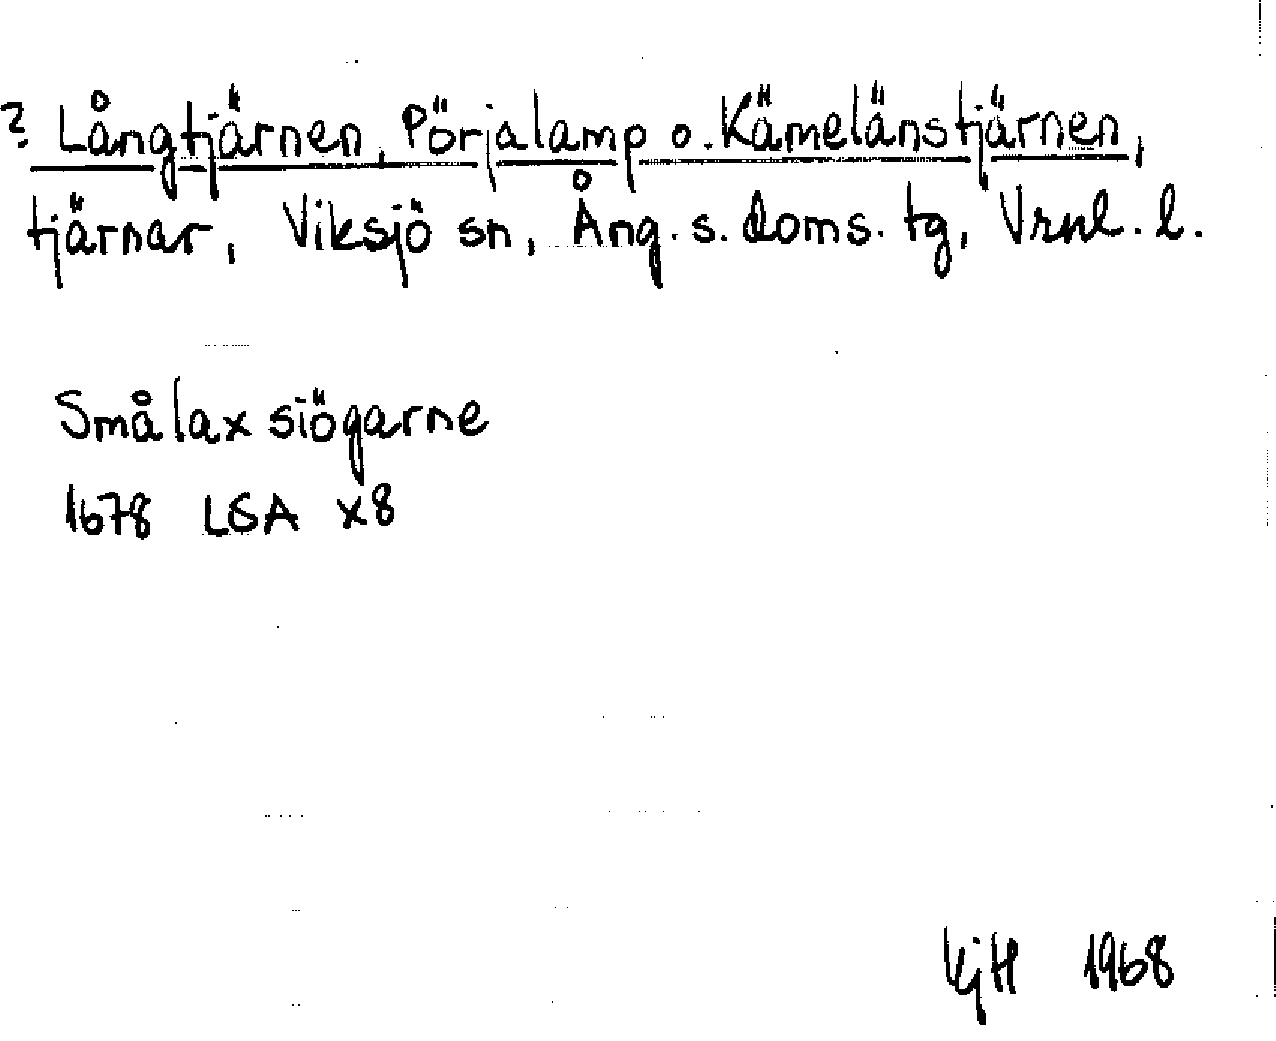 ? Långtjärnen, Pörjalamp o. Kämelänstjärnen,
tjärnar, Viksjö sn, Ång. s. doms. tg, Vrnl. l.
Smålax siögarne
1678 LSA x8
KjH 1968